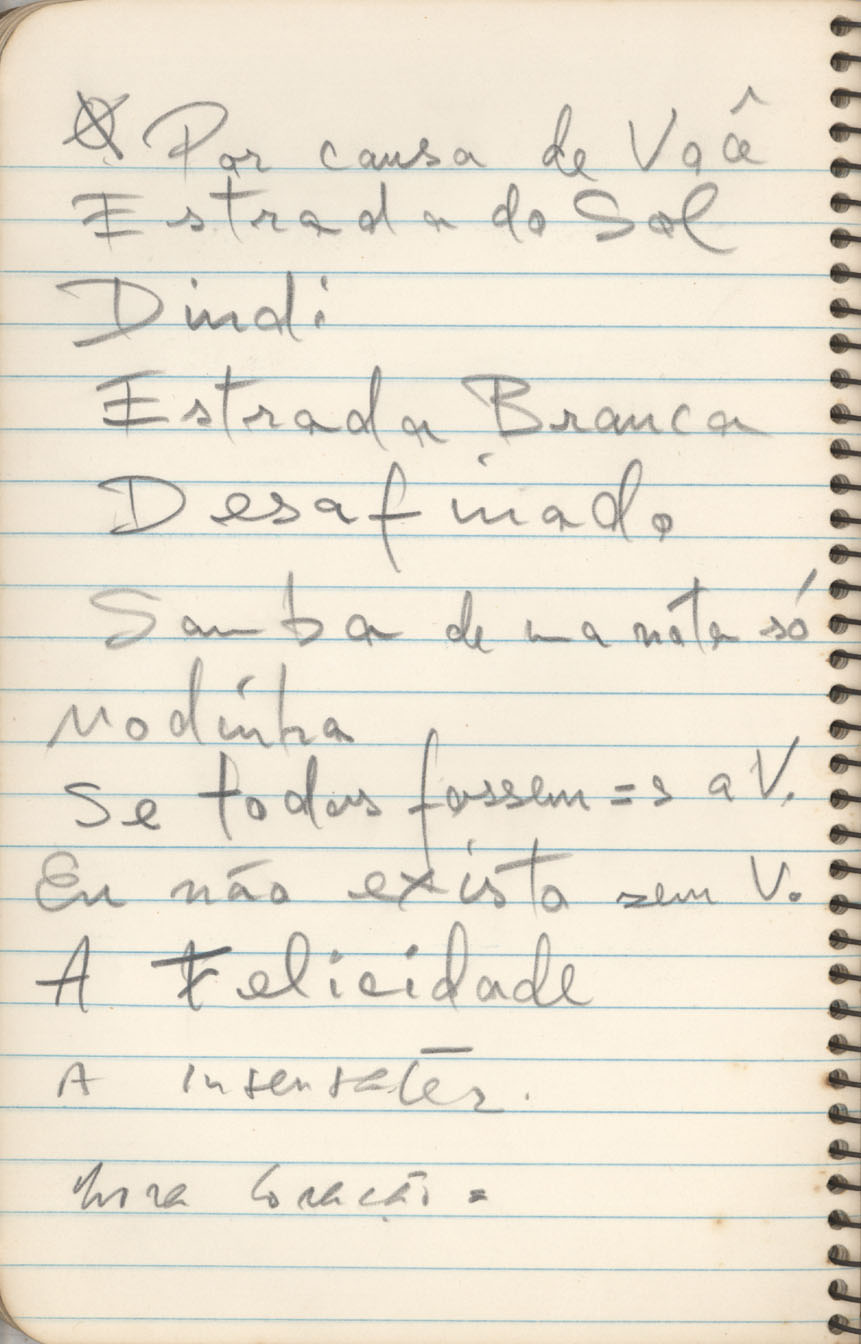 Por causa de Você
Estrada do Sol
Dindi
Estrada Branca
Desafinado
Samba de uma nota só
Modinha
Se todas fossem =s a V.
Eu não existo sem V.
A Felicidade
A insensatez.
Coração =